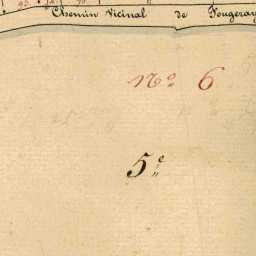 Chemin vicinal de Fougeray
nº 6
5e